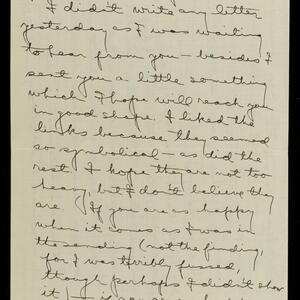 I didn't write any letter
yesterday as I was waiting
to hear from you — besides I
sent you a little something
which I hope will reach you
in good shape. I liked the
links because they seemed
so symbolical — as did the
rest. I hope they are not too
heavy, but I don't believe they
are. If you are as happy
when it comes as I was in
the sending (not the finding,
for I was terribly fussed,
though perhaps I didn't show
it) —